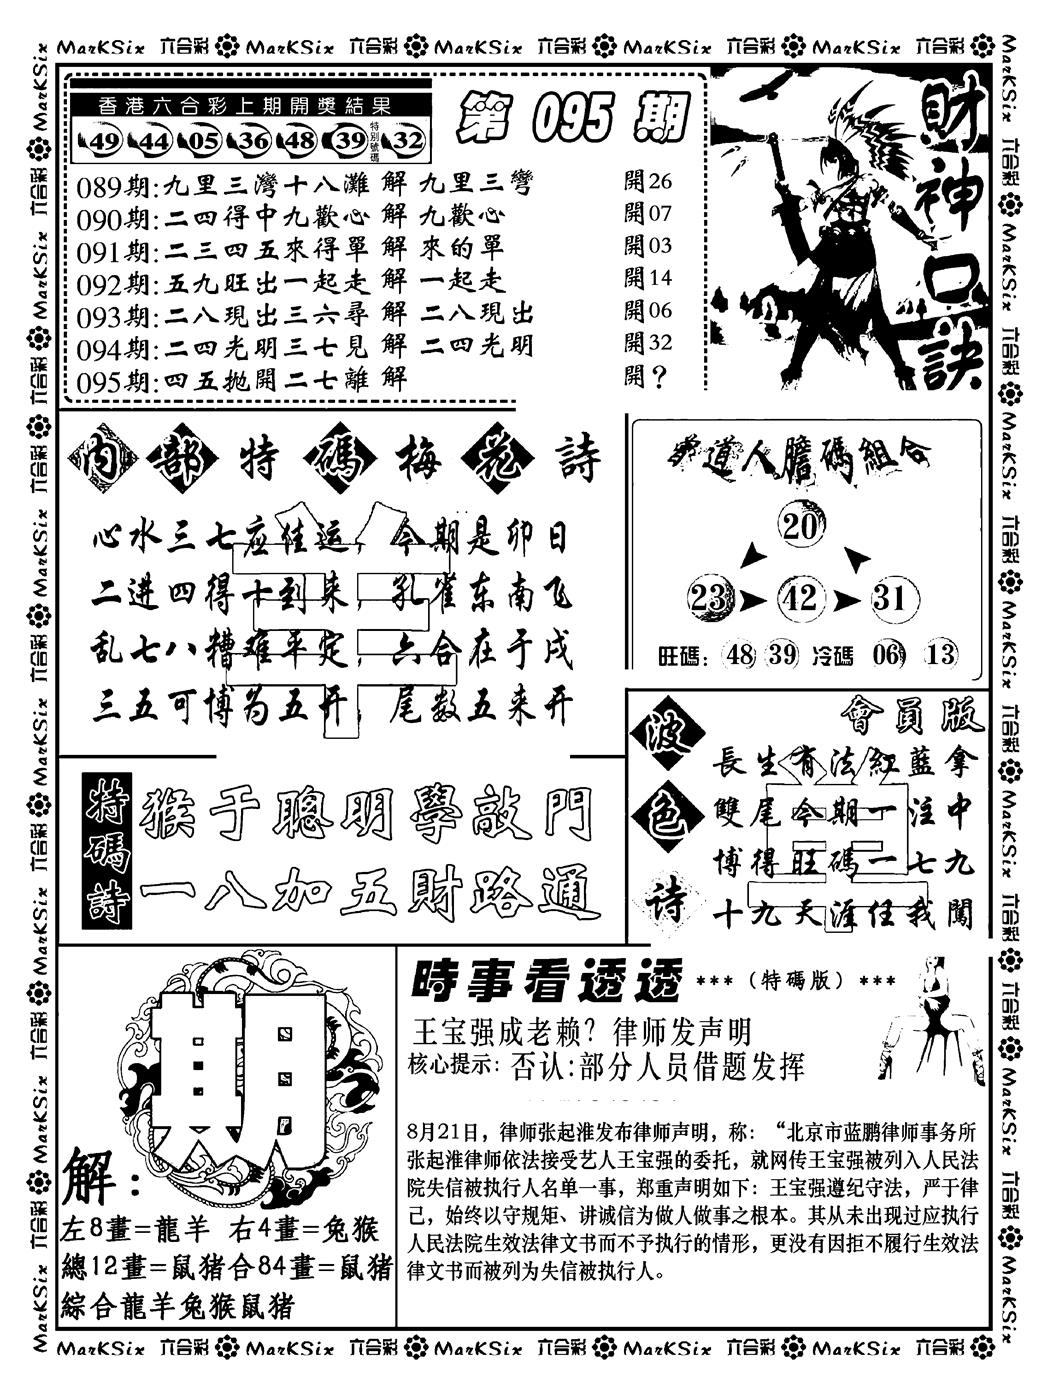 MarKSix 六合彩 MarKSix 六合彩 MarKSix 六合彩 MarKSix 六合彩 MarKSix 六合彩
香港六合彩上期開獎結果
49 44 05 36 48 39 特別號碼 32
第 095 期
089期:九里三灣十八灘 解 九里三彎 開26
090期:二四得中九歡心 解 九歡心 開07
091期:二三四五來得單 解 來的單 開03
092期:五九旺出一起走 解 一起走 開14
093期:二八現出三六尋 解 二八現出 開06
094期:二四光明三七見 解 二四光明 開32
095期:四五拋開二七離 解 開?
財神口訣
內部特碼梅花詩
心水三七应佳运，今期是卯日
二进四得十到来，孔雀东南飞
乱七八糟难平定，六合在于戌
三五可博为五开，尾数五来开
道人膽碼組合
20
23 42 31
旺碼：48 39 冷碼 06 13
特碼詩
猴于聰明學敲門
一八加五財路通
波色诗
會員版
長生有法紅藍拿
雙尾今期一注中
博得旺碼一七九
十九天涯任我闖
期
解：
左8畫=龍羊 右4畫=兔猴
總12畫=鼠猪合84畫=鼠猪
綜合龍羊兔猴鼠猪
時事看透透 ***（特碼版）***
王宝强成老赖？律师发声明
核心提示：否认:部分人员借题发挥
8月21日，律师张起淮发布律师声明，称：“北京市蓝鹏律师事务所
张起淮律师依法接受艺人王宝强的委托，就网传王宝强被列入人民法
院失信被执行人名单一事，郑重声明如下：王宝强遵纪守法，严于律
己，始终以守规矩、讲诚信为做人做事之根本。其从未出现过应执行
人民法院生效法律文书而不予执行的情形，更没有因拒不履行生效法
律文书而被列为失信被执行人。
MarKSix 六合彩 MarKSix 六合彩 MarKSix 六合彩 MarKSix 六合彩 MarKSix 六合彩